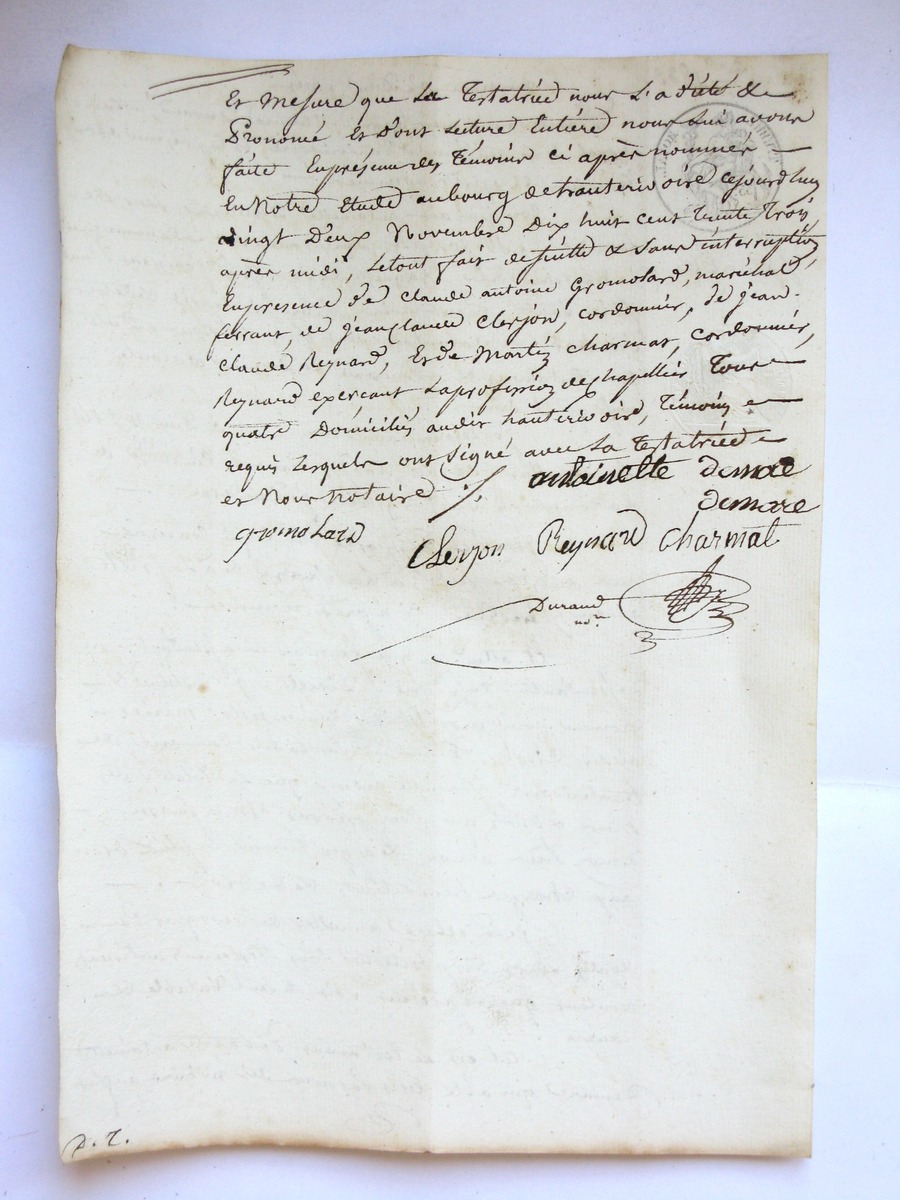 Et mesure que La Testatrice nous L'a dicté &
Prononcé Et Dont Lecture Entière nous Lui avons
faite En présence des Témoins ci après nommés —
En Notre Etude au bourg de hauterivoire cejourd'huy
vingt Deux Novembre Dix huit cent trente Trois
après midi, Letout fait de suitte & sans interruption,
En presence de Claude antoine Gromolard, maréchal
ferrant, de jean Claude Clerjon, cordonnier, de jean-
Claude Reynard, Et de Charmat, cordonnier,
Reynard exercant La profession de Chapellier Tous
quatre Domiciliés audit hauterivoire, Témoins
requis Lesquels ont signé avec La Testatrice
et Nous notaire ./.
antoinette demare
demare
gromolard
Clerjon Reynard Charmat
Durand
nore
P. T.